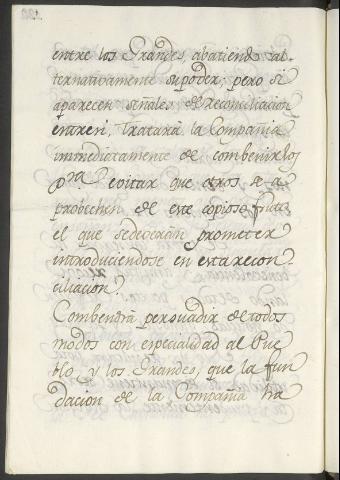 entre los Grandes, abatiendo al-
ternativamente su poder; pero si
aparecen señales de reconciliacion
entre si, tratarà la Compañia
immediatamente de combenirlos
p.ra evitar que otros se a
probechen de este copioso fruto
el que sedeveràn prometer
introduciendose en esta recon
ciliacion.
Combendrà persuadir de todos
modos con especialidad al Pue
blo, y los Grandes, que la fun
dacion de la Compañia ha